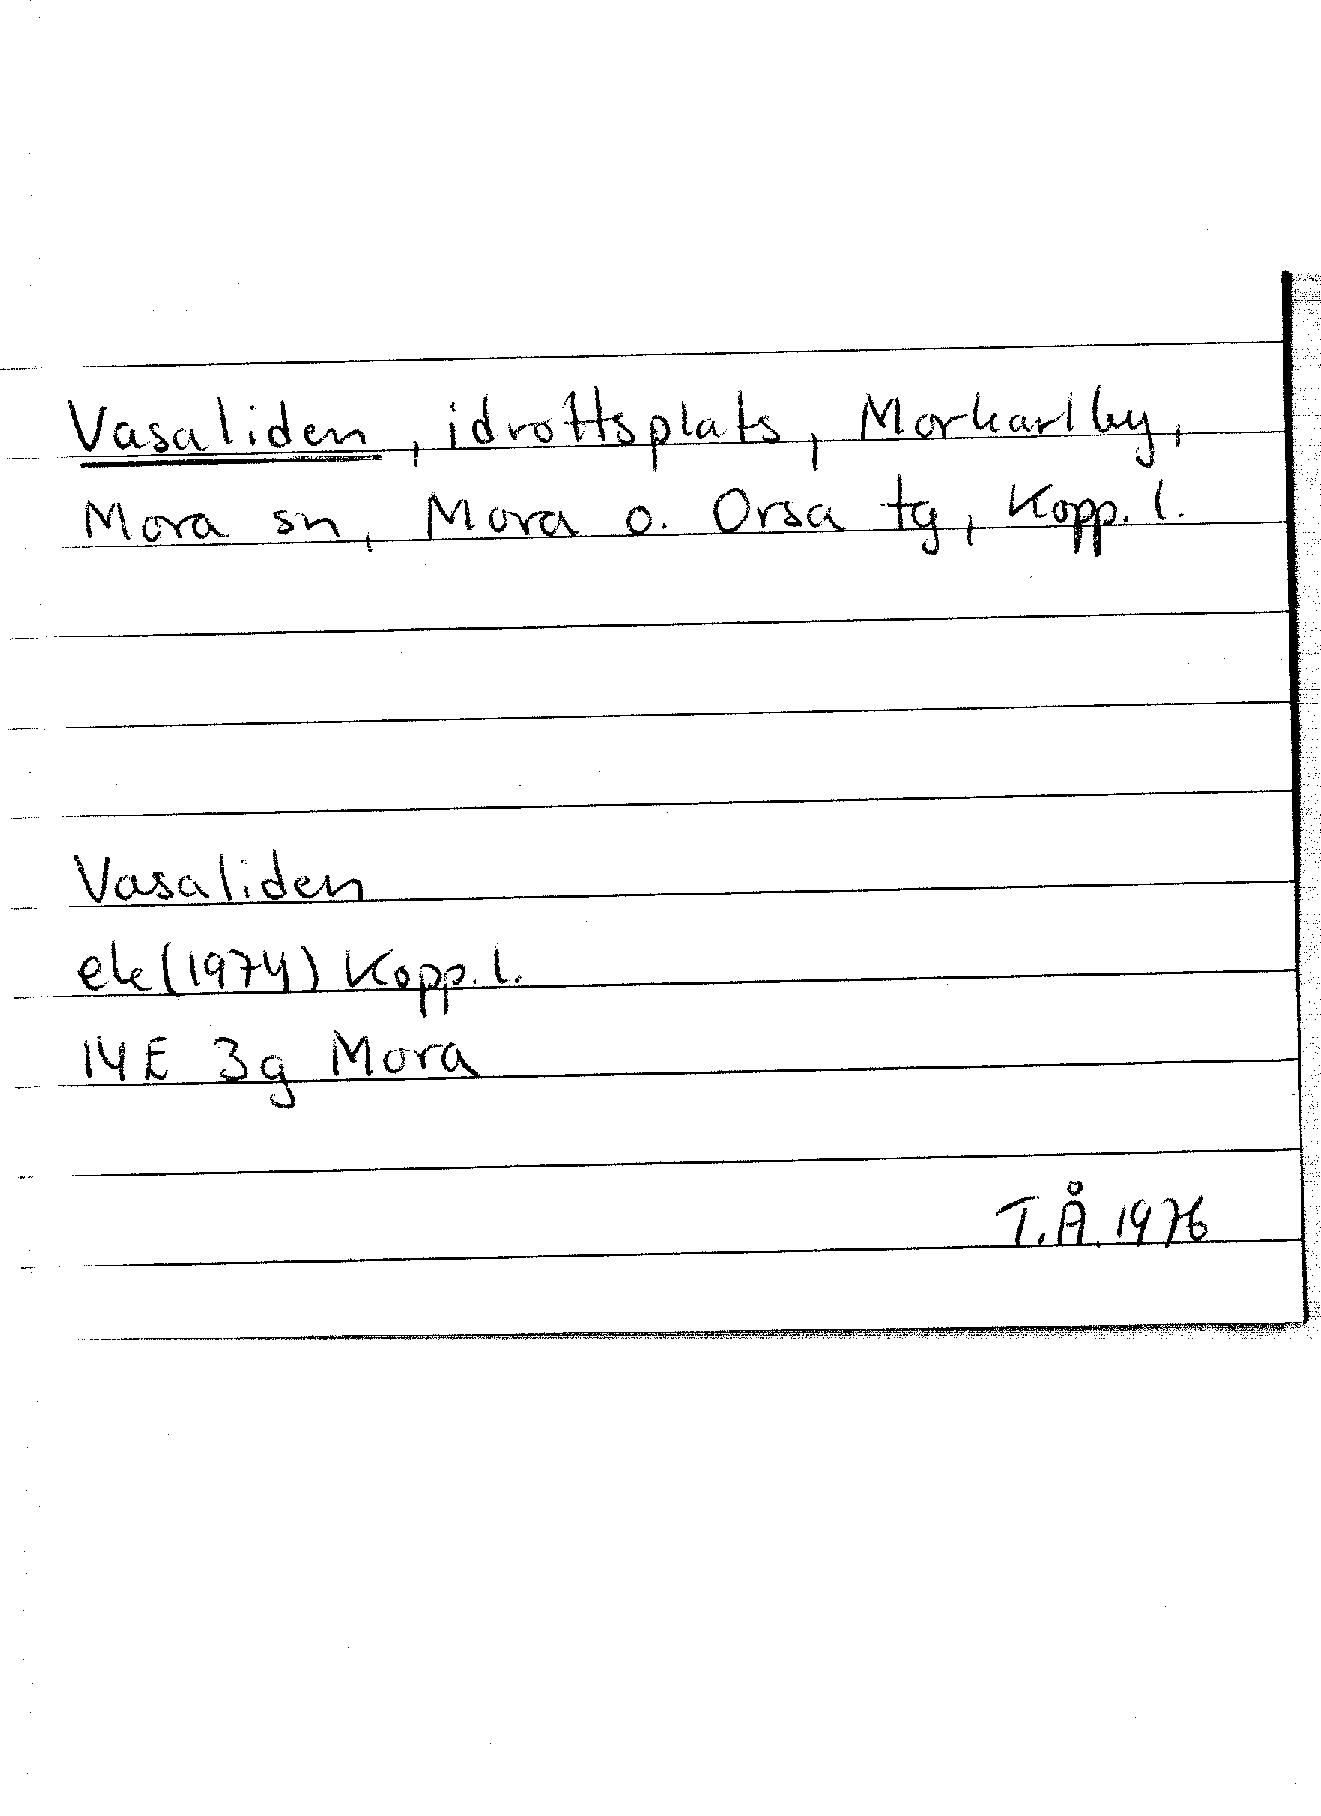 Vasaliden, idrottsplats, Morkarlby,
Mora sn, Mora o. Orsa tg, Kopp. l.
Vasaliden
ek (1974) Kopp. l.
14E 3g Mora
T.Å. 1976